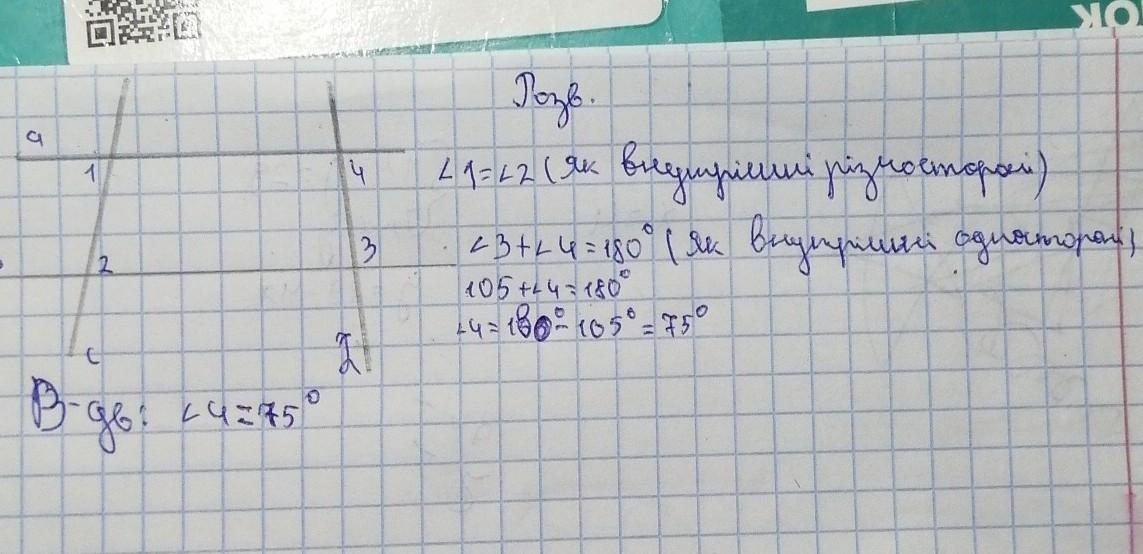 ОК
Розв.
a
1
4
∠1=∠2 (Як внутрішні різносторонні)
3
∠3+∠4=180° (Як внутрішні односторонні)
2
105+∠4=180°
∠4=180°-105°=75°
c
d
В-дь: ∠4=75°